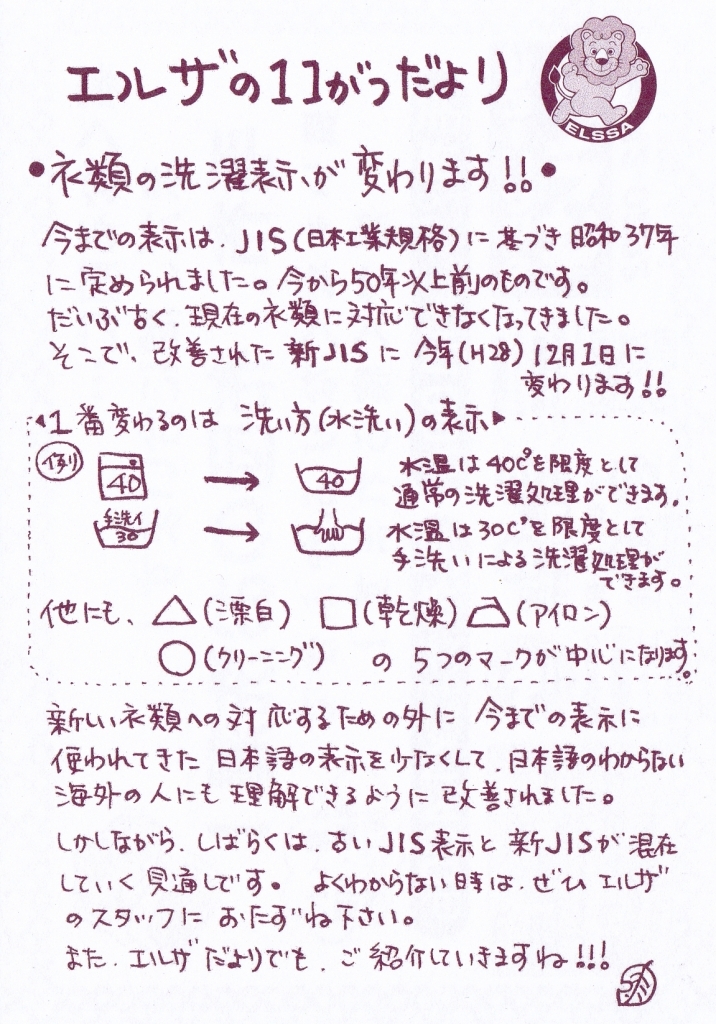 エルザの11がつだより
ELSSA
●衣類の洗濯表示が変わります!!●
今までの表示は、JIS(日本工業規格)に基づき昭和37年
に定められました。今から50年以上前のものです。
だいぶ古く、現在の衣類に対応できなくなってきました。
そこで、改善された新JISに今年(H28)12月1日に
変わります!!
◀1番変わるのは 洗い方(水洗い)の表示▶
例り
40 → 40 水温は40C°を限度として
通常の洗濯処理ができます。
手洗イ 30 → 水温は30C°を限度として
手洗いによる洗濯処理が
できます。
他にも、△(漂白) □(乾燥) (アイロン)
○(クリーニング) の 5つのマークが中心になります。
新しい衣類への対応するための外に 今までの表示に
使われてきた日本語の表示を少なくして、日本語のわからない
海外の人にも理解できるように改善されました。
しかしながら、しばらくは、古いJIS表示と新JISが混在
していく見通しです。よくわからない時は、ぜひ エルザ
のスタッフに おたずね下さい。
また、エルザだよりでも、ご紹介していきますね!!!